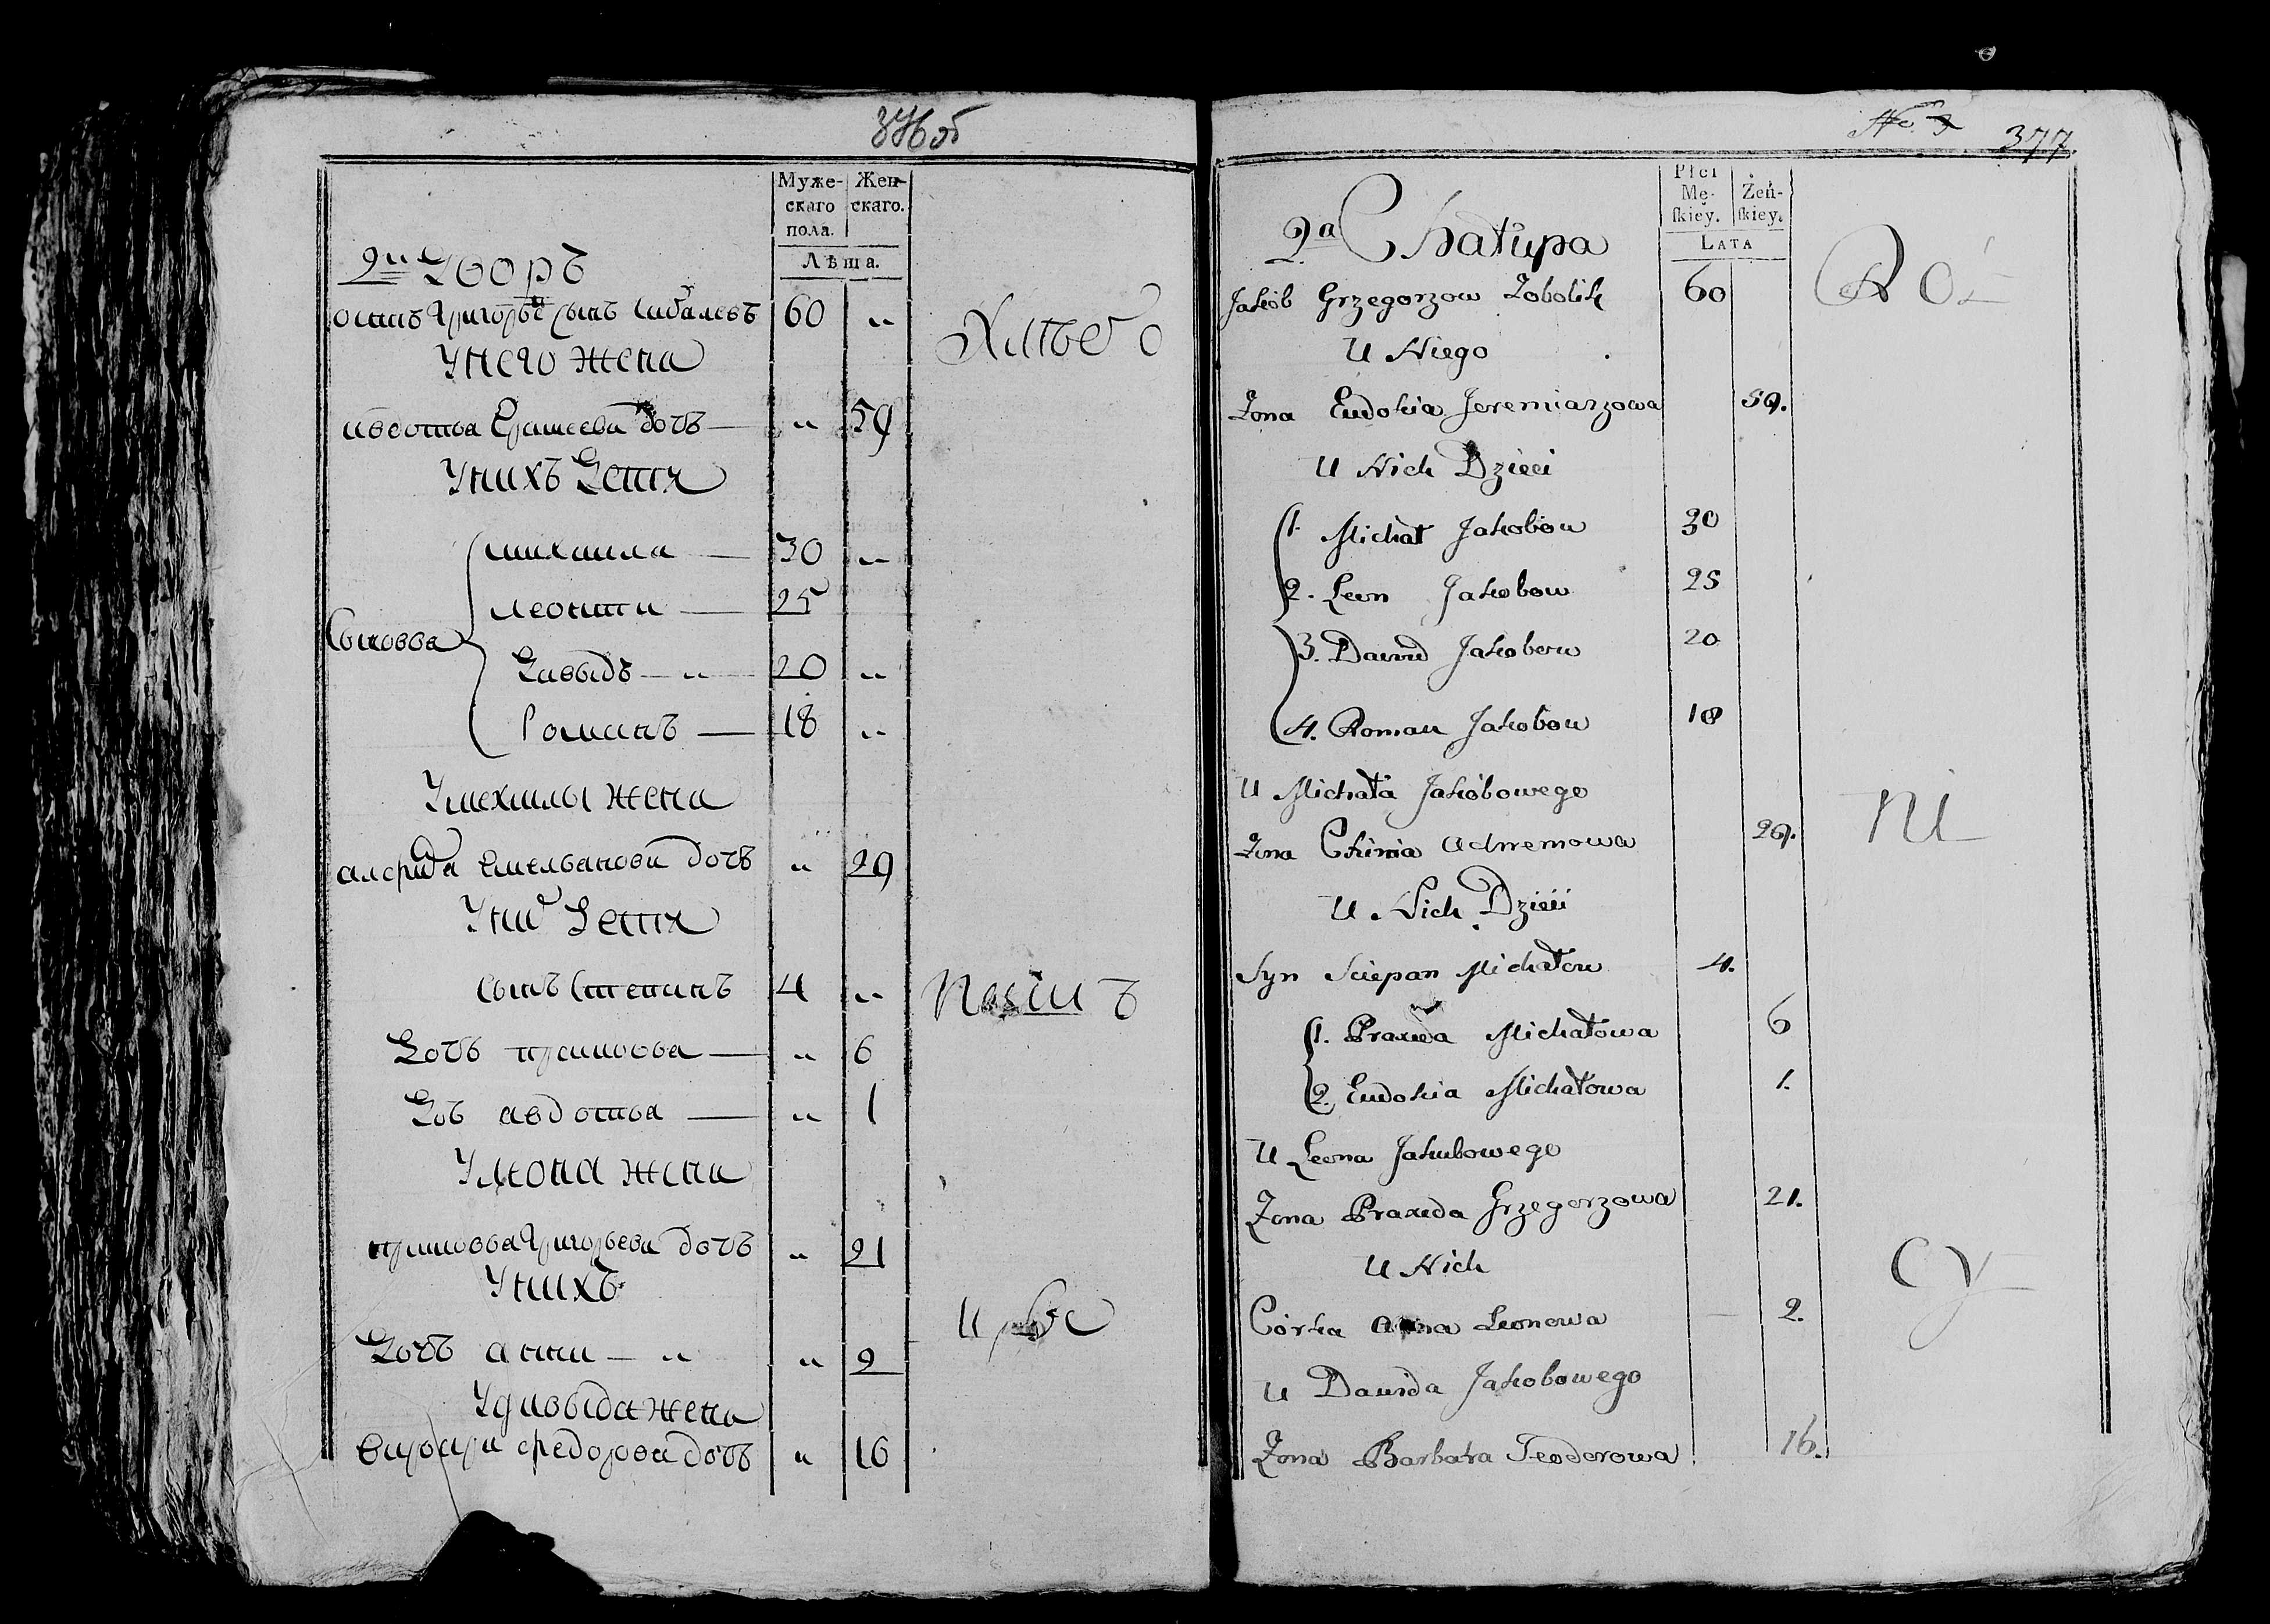 376 об
Муже-
скаго
пола.
Жен-
скаго.
Лѣта.
2й Дворъ
Осипъ Григорье сынъ 60 „
Унего жена
авдотья Еремеева дочь — „ 59
Унихъ Детя
Сыновья
михаила — 30 „
леонти — 25
Давыдъ — „ — 20 „
Романъ — 18 „
Умехаилы жена
Емельанова дочь „ 29
Уних Детя
сынъ Степанъ 4 „
Дочь — „ 6
Доч авдотья — „ 1
Улеона жена
Григорьева дочь „ 21
Унихъ
Дочь анна — „ „ 2
Удавыда жена
варвара федорова дочь „ 16
No 3
377.
Płci
Mę-
ſkiey.
Żeń-
ſkiey.
Lata
2a Chałupa
Jakób Grzegorzow Zobolik 60
U Niego
Zona Eudokia Jeremiarzowa 59.
U Nich Dzieci
1. Michał Jakobow 30
2. Leon Jakobow 25
3. Dawid Jakobow 20
4. Roman Jakobow 18
U Michała Jakóbowego
Zona 29.
U Nich Dzieci
Syn Sciepan Michałow 4.
1. Praxeda Michałowa 6
2. Eudokia Michałowa 1.
U Leona Jakubowego
Zona Praxeda Grzegorzowa 21.
U Nich
Córka Anna Leonowa — 2.
U Dawida Jakobowego
Zona Barbara Teodorowa 16.